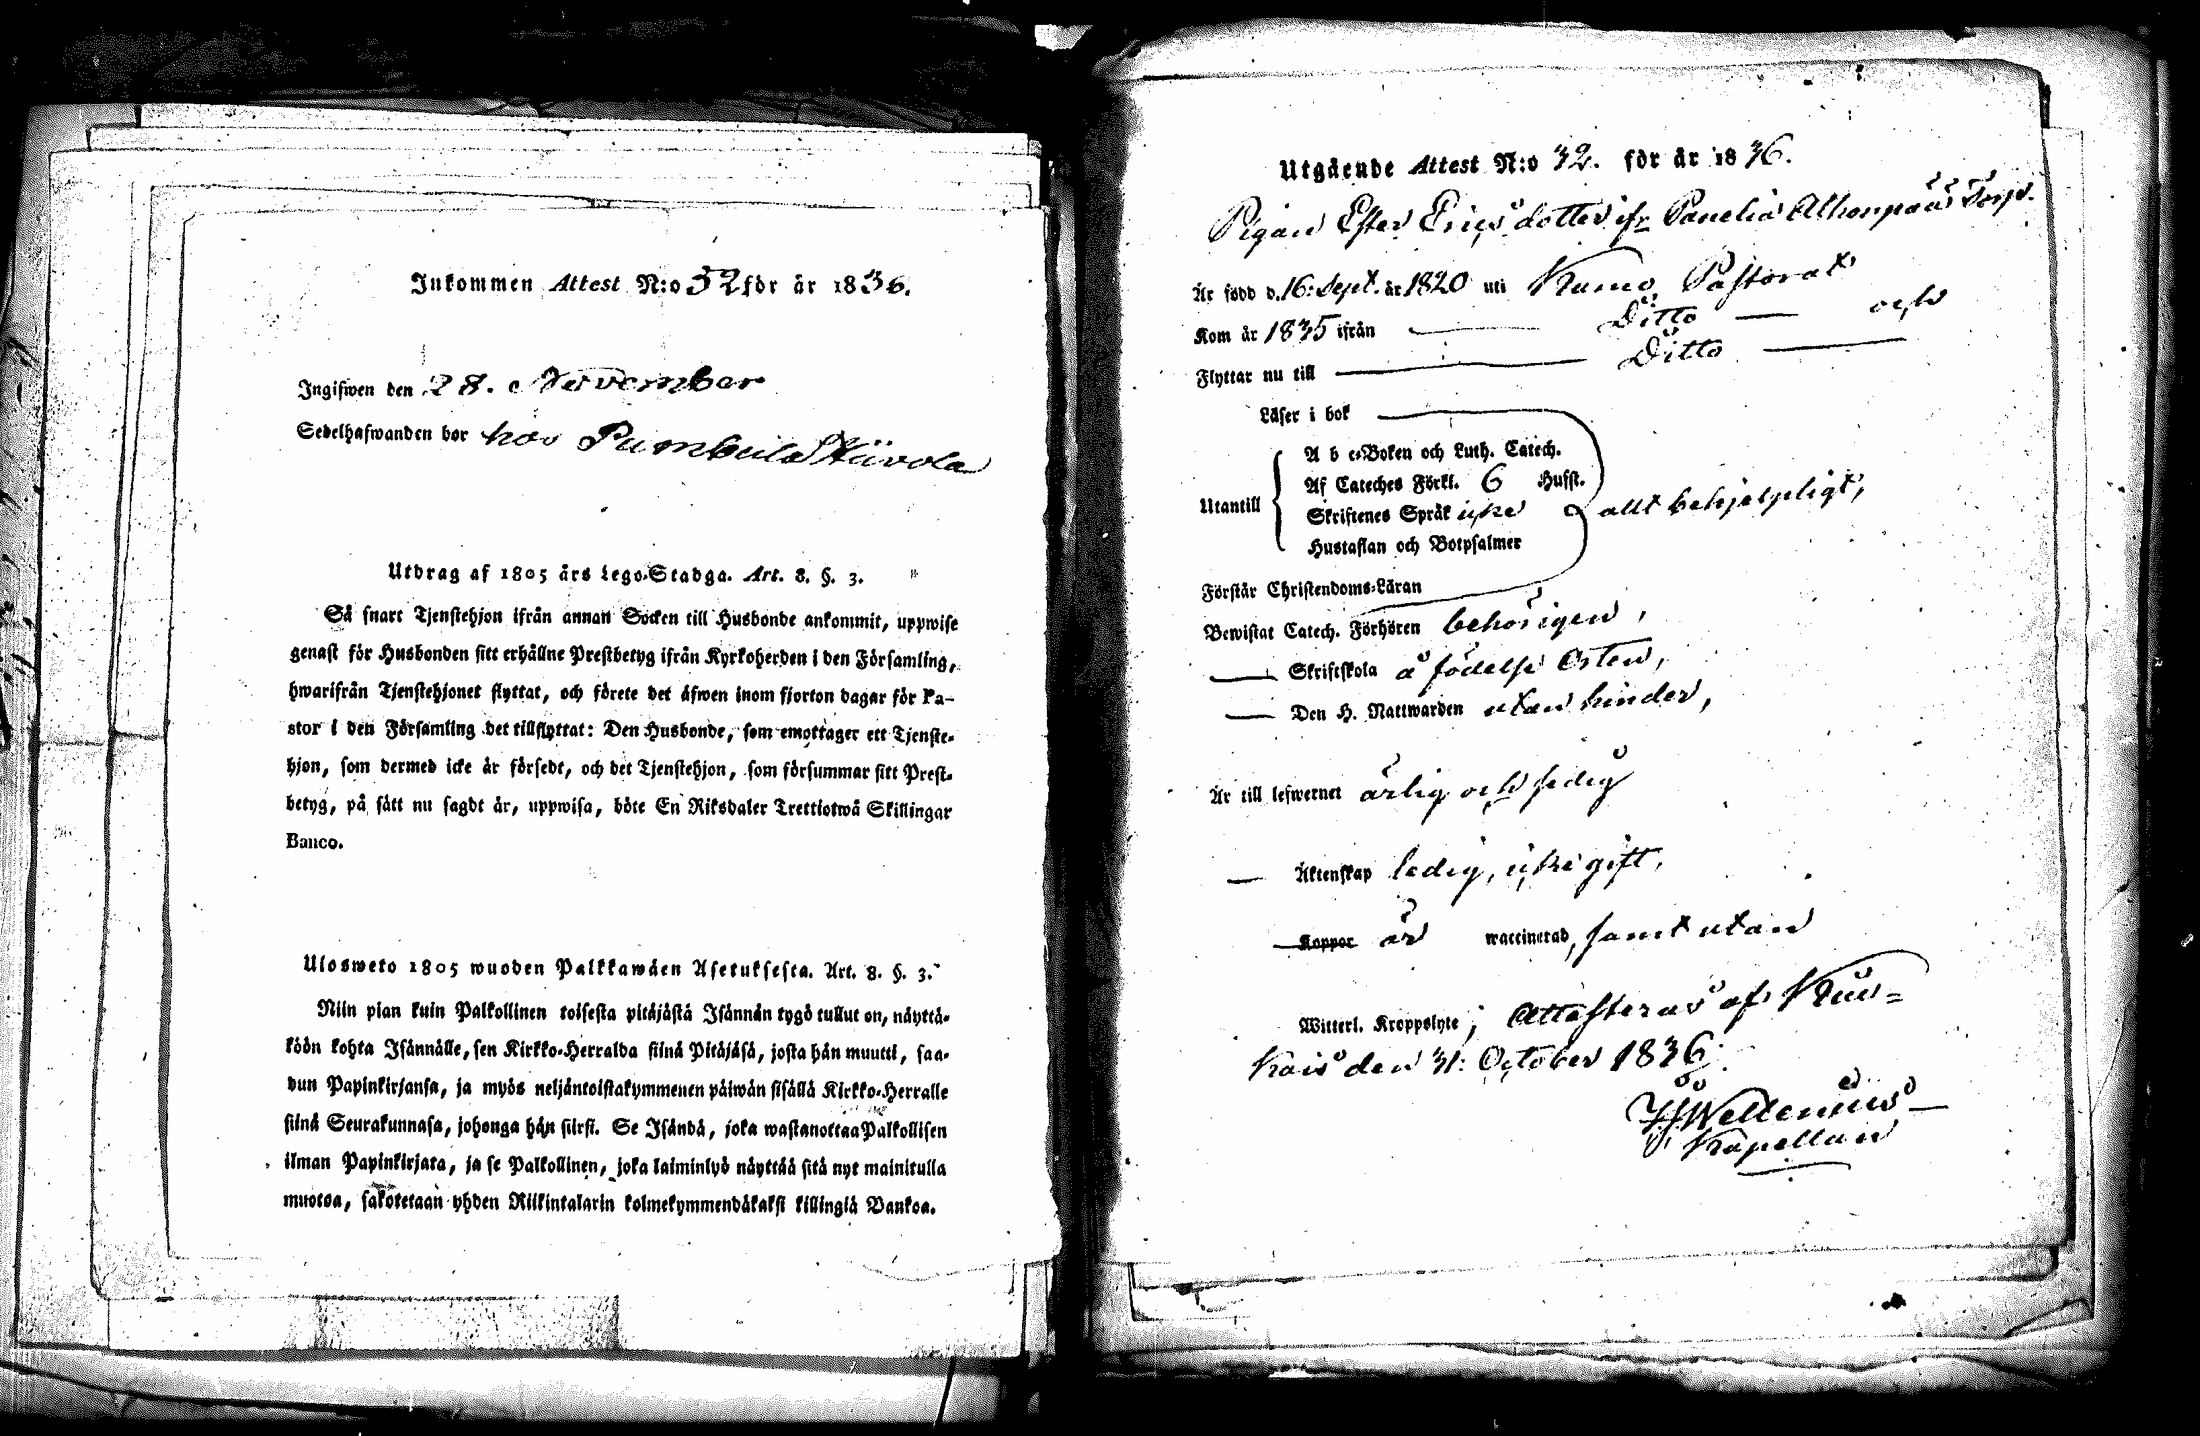 Inkommen Attest N:o 32 för år 1836.
Ingifwen den 28. November
Sedelhafwanden bor hos Pumbula Kiivola
Utdrag af 1805 års Lego-Stadga. Art. 8. §. 3.
Så snart Tjenstehjon ifrån annan Socken till Husbonde ankommit, uppwise
genast för Husbonden sitt erhållne Prestbetyg ifrån Kyrkoherden i den Församling,
hwarifrån Tjenstehjonet flyttat, och förete det äfwen inom fjorton dagar för Pa-
stor i den Församling det tillflyttat: Den Husbonde, som emottager ett Tjenste-
hjon, som dermed icke är försedt, och det Tjenstehjon, som försummar sitt Prest-
betyg, på sätt nu sagdt är, uppwisa, böte En Riksdaler Trettiotwå Skillingar
Banco.
Ulosweto 1805 wuoden Palkkawäen Asetuksesta. Art. 8. §. 3.
Niin pian kuin Palkollinen toisesta pitäjästä Isännän tygö tullut on, näyttä-
köön kohta Isännälle, sen Kirkko-Herralda siinä Pitäjäsä, josta hän muutti, saa-
dun Papinkirjansa, ja myös neljäntoistakymmenen päiwän sisällä Kirkko-Herralle
siinä Seurakunnasa, johonga hän siirsi. Se Isändä, joka wastanottaa Palkollisen
ilman Papinkirjata, ja se Palkollinen, joka laiminlyö näyttää sitä nyt mainitulla
muotoa, sakotetaan yhden Riikintalarin kolmekymmendäkaksi killingiä Bankoa.
Utgående Attest N:o 32. för år 1836.
Pigan Ester Ericsdotter ifr Panelia Alhonpää Torp.
Är född d. 16: Sept. år 1820 uti Kumo Pastorat
Kom år 1835 ifrån Ditto och
Flyttar nu till Ditto
Läser i bok
A b c-Boken och Luth. Catech.
Af Cateches Förkl. 6 Husst.
Utantill Skriftenes Språk icke allt behjelpligt,
Hustaflan och Botpsalmer
Förstår Christendoms-Läran
Bewistat Catech. Förhören behörigen,
Skriftskola å födelse Orten,
Den H. Nattwarden utan hinder,
Är till lefwernet ärlig och sedig
Äktenskap ledig, icke gift,
Koppor är waccinerad, samt utan
Witterl. Kroppslyte; Attesteras af Kiu-
kais den 31: October 1836.
Wellenius
Kapellan